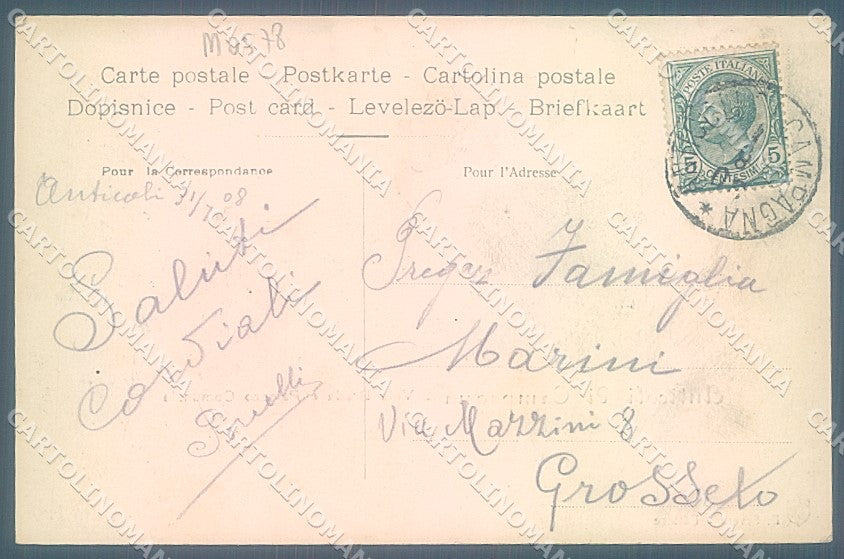 Mos 78
Carte postale - Postkarte - Cartolina postale
Dopisnice - Post card - Levelezö-Lap. Briefkaart
POSTE ITALIANE
5 CENTESIMI 5
CAMPAGNA
Pour la Correspondance
Pour l'Adresse
Anticoli 31/7 08
Saluti
cordiali
Preg.
Famiglia
Marini
Via Mazzini 8
Grosseto
CARTOLINOMANIA